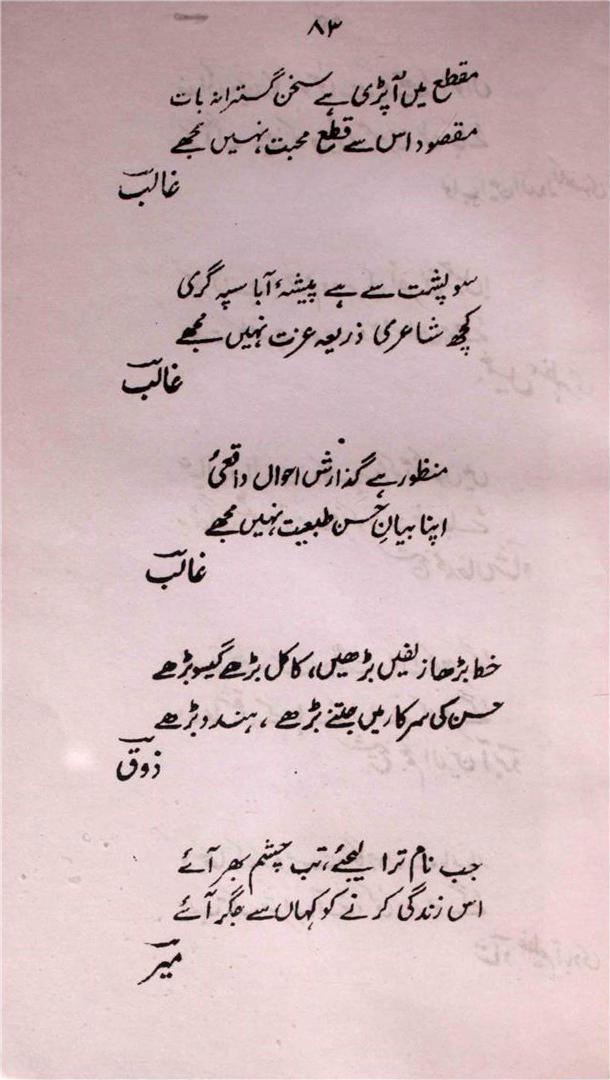 ۸۳
مقطع میں آپڑی ہے سخن گسترانہ بات
مقصود اس سے قطع محبت نہیں مجھے
غالب
سو پشت سے ہے پیشۂ آبا سپہ گری
کچھ شاعری ذریعہ عزت نہیں مجھے
غالب
منظور ہے گذارش احوال واقعئ
اپنا بیانِ حُسن طبیعت نہیں مجھے
غالب
خط بڑھا زلفیں بڑھیں، کاکل بڑھے گیسو بڑھے
حسن کی سرکار میں جتنے بڑھے، ہندو بڑھے
ذوق
جب نام ترا لیجئے، تب چشم بھر آئے
اس زندگی کرنے کو کہاں سے جگر آئے
میر